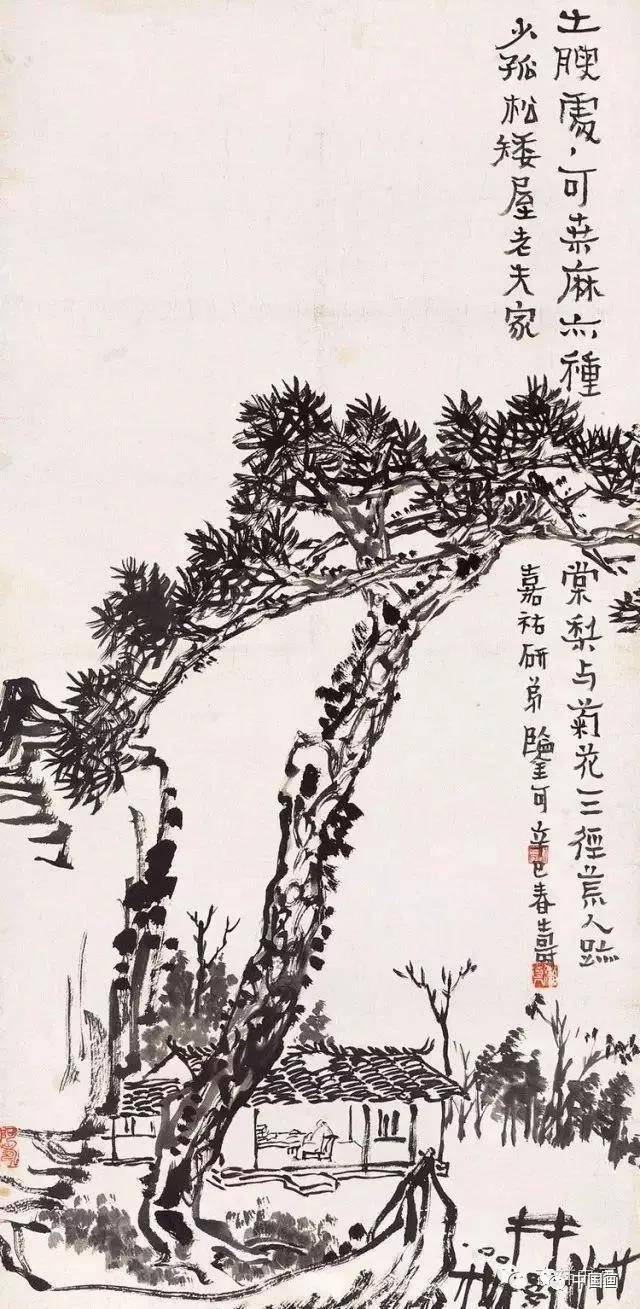 土腴處〻可桑麻亦種
棠梨与菊花三徑荒人跡
少孤松矮屋老夫家
嘉祐研弟鑒可辛巳春壽
中国画